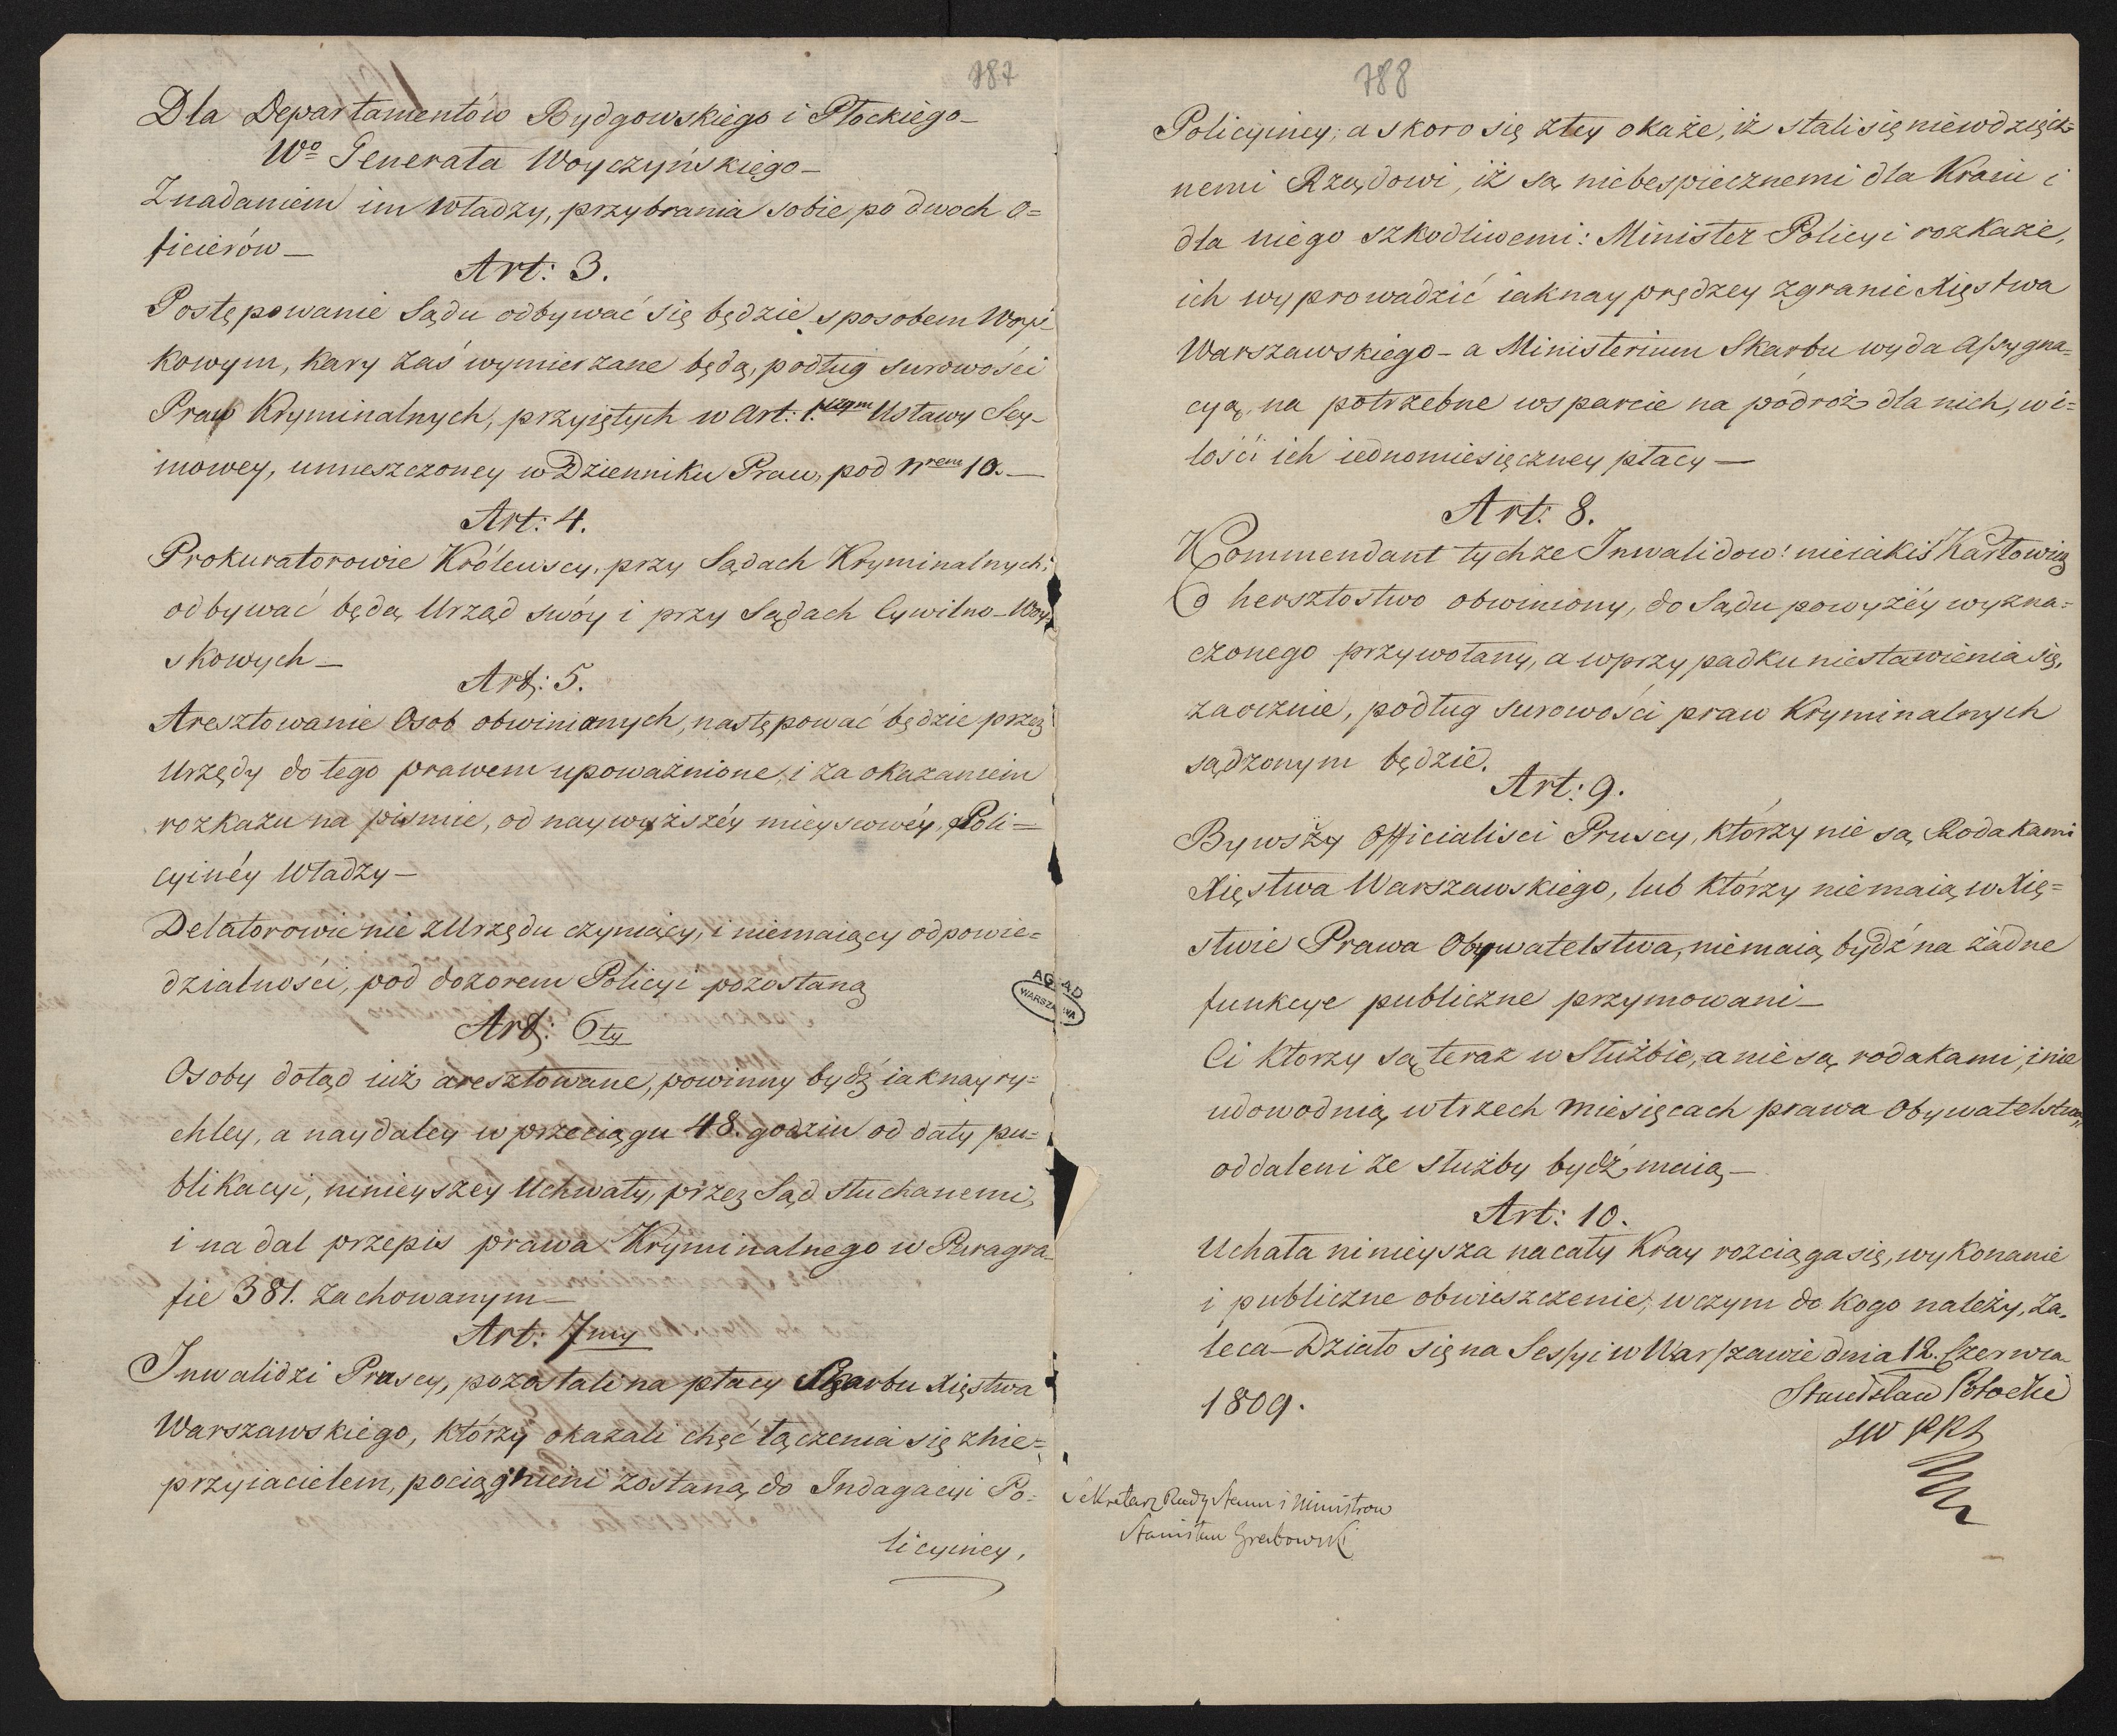 787
Dla Departamentów Bydgowskiego i Płockiego_
Wo Generała Woyczyńskiego_
Z nadaniem im Władzy, przybrania sobie po dwoch O=
ficierów_
Art: 3.
Postępowanie Sądu odbywać się będzie sposobem Woys
kowym, kary zaś wymierzane będą, podług surowości
Praw Kryminalnych, przyiętych w Art: 1.wszym Ustawy Sey-
mowey, umieszczoney w Dzienniku Praw, pod Nrem 10._
Art: 4.
Prokuratorowie Królewscy, przy Sądach Kryminalnych,
odbywać będą Urząd swóy i przy Sądach Cywilno-Woy
skowych_
Art: 5.
Aresztowanie Osob obwinianych, następować będzie przez
Urzędy do tego prawem upoważnione, i za okazaniem
rozkazu na piśmie, od naywyższéy mieyscowéy, Poli=
cyinéy Władzy_
Delatorowie nie z Urzędu czyniący, i niemaiący odpowie=
dzialności, pod dozorem Policyi pozostaną
Art: 6ty
Osoby dotąd iuż aresztowane, powinny bydź iaknayry=
chley, a naydaley w przeciągu 48. godzin od daty pu=
blikacyi, ninieyszey Uchwały, przez Sąd słuchanemi,
i na dal przepis prawa Kryminalnego w Paragra_
fie 381. zachowanym_
Art: 7my
Inwalidzi Pruscy, pozostali na płacy Skarbu Xięstwa
Warszawskiego, którzy okazali chęć łączenia się z nie=
przyiacielem, pociągnieni zostaną do Indagacyi Po=
licyiney,
AGAD
WARSZAWA
788
Policyiney; a skoro się z tey okaże, iż stali się niewdzięcz=
nemi Rządowi, iż są niebespiecznemi dla Kraiu i
dla niego szkodliwemi: Minister Policyi rozkaże,
ich wyprowadzić iaknayprędzey z granic Xięstwa
Warszawskiego - a Ministerium Skarbu wyda Assygna=
cyą, na potrzebne wsparcie na podróż dla nich, wi=
lości ich iednomiesięczney płacy_
Art: 8.
Kommendant tychże Inwalidow: nieiakiś Karłowicz
o hersztostwo obwiniony, do Sądu powyżéy wyzna=
czonego przywołany, a w przypadku niestawienia się,
zaocznie, podług surowości praw Kryminalnych
sądzonym będzie.
Art: 9.
Bywszy Officialisci Pruscy, którzy nie są Rodakami
Xięstwa Warszawskiego, lub którzy niemaią w Xię=
stwie Prawa Obywatelstwa, niemaią bydź na żadne
funkcye publiczne przymowani_
Ci ktorzy są teraz w Służbie, a nie są rodakami, i nie
udowodnią w trzech miesiącach prawa Obywatelstwa,
oddaleni ze służby bydź maią_
Art: 10.
Uchała ninieysza na cały Kray rozciąga się, wykonanie
i publiczne obwieszczenie, w czym do kogo należy, za_
leca_ Działo się na Sessyi w Warszawie dnia 12. Czerwca
1809.
Stanisław Potocki
Sekretarz Rady Stanu i Ministrow
Stanisław Grabowski